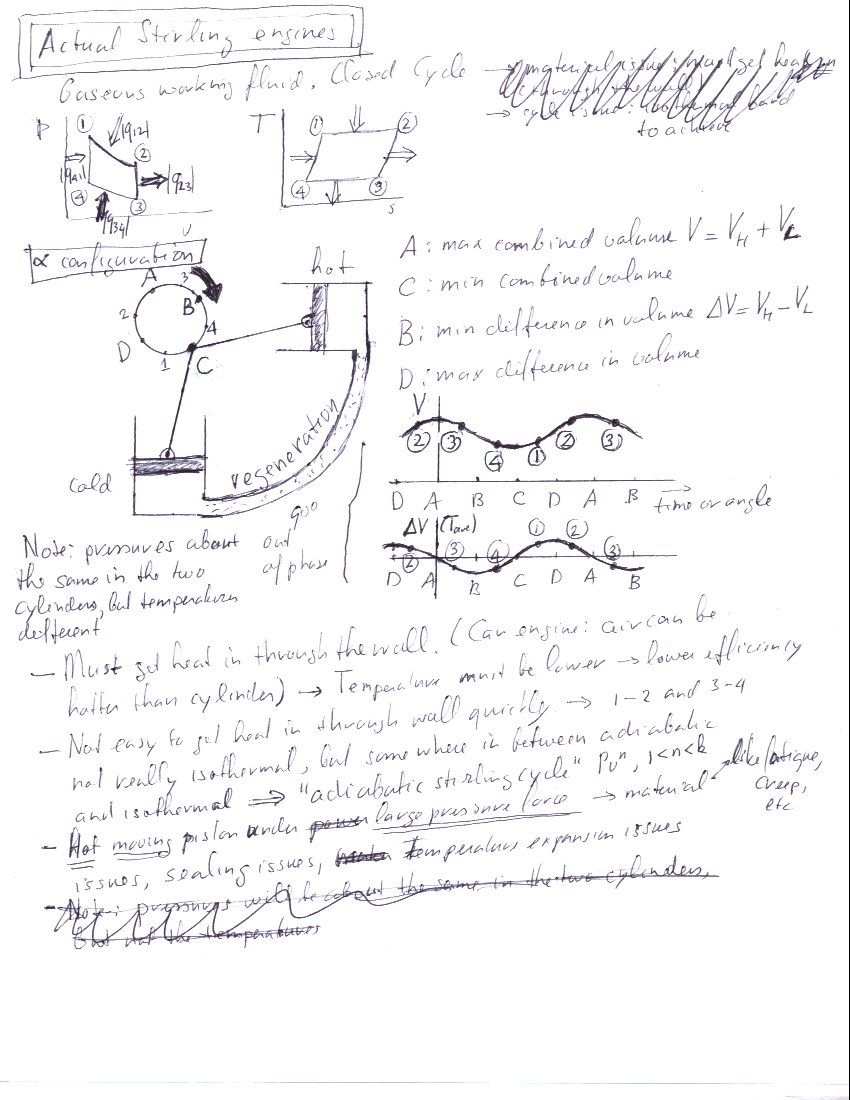 Actual Stirling engines
Gaseous working fluid. Closed Cycle → material issue: must get heat in
through the wall
→ cycle issue: isothermal hard
to achieve
P
①
|q12|
②
|q41|
|q23|
④
③
|q34|
v
T
①
②
④
③
s
α configuration
hot
A
3
B
2
4
D
1
C
cold
regeneration
A: max combined volume V = V_H + V_L
C: min combined volume
B: min difference in volume ΔV = V_H - V_L
D: max difference in volume
V
② ③ ④ ① ② ③
D A B C D A B
time or angle
ΔV (Tave)
② ③ ④ ① ② ③
D A B C D A B
90°
out
of phase
Note: pressures about
the same in the two
cylinders, but temperatures
different
— Must get heat in through the wall. (Car engine: air can be
hotter than cylinder) → Temperature must be lower → lower efficiency
— Not easy to get heat in through wall quickly → 1-2 and 3-4
not really isothermal, but somewhere in between adiabatic
and isothermal ⇒ "adiabatic stirling cycle" Pvⁿ, 1<n<k
- Hot moving piston under power large pressure force → material
like fatigue,
creep,
etc
issues, sealing issues, Temperature expansion issues
- Note: pressures will be about the same in the two cylinders,
but not the temperatures